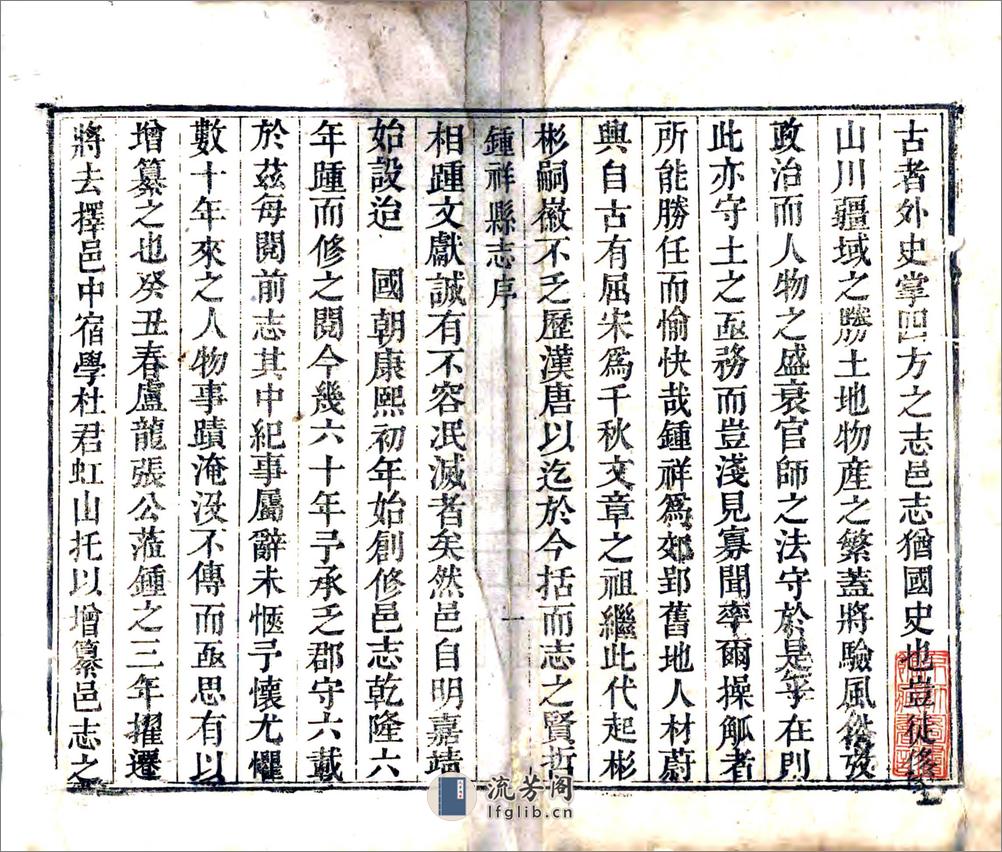 古者外史掌四方之志邑志猶國史也豈徒侈
山川疆域之勝土地物產之繁蓋將驗風俗攷
政治而人物之盛衰官師之法守於是乎在則
此亦守土之亟務而豈淺見寡聞率爾操觚者
所能勝任而愉快哉鍾祥爲郊郢舊地人材蔚
興自古有屈宋爲千秋文章之祖繼此代起彬
彬嗣徽不乏歷漢唐以迄於今括而志之賢哲
鍾祥縣志序
一
相踵文獻誠有不容泯滅者矣然邑自明嘉靖
始設治　國朝康熙初年始創修邑志乾隆六
年踵而修之閱今幾六十年予承乏郡守六載
於茲每閱前志其中紀事屬辭未愜予懷尤懼
數十年來之人物事蹟淹沒不傳而亟思有以
增纂之也癸丑春盧龍張公蒞鍾之三年擢遷
將去擇邑中宿學杜君虹山托以增纂邑志之
流芳閣
lfglib.cn